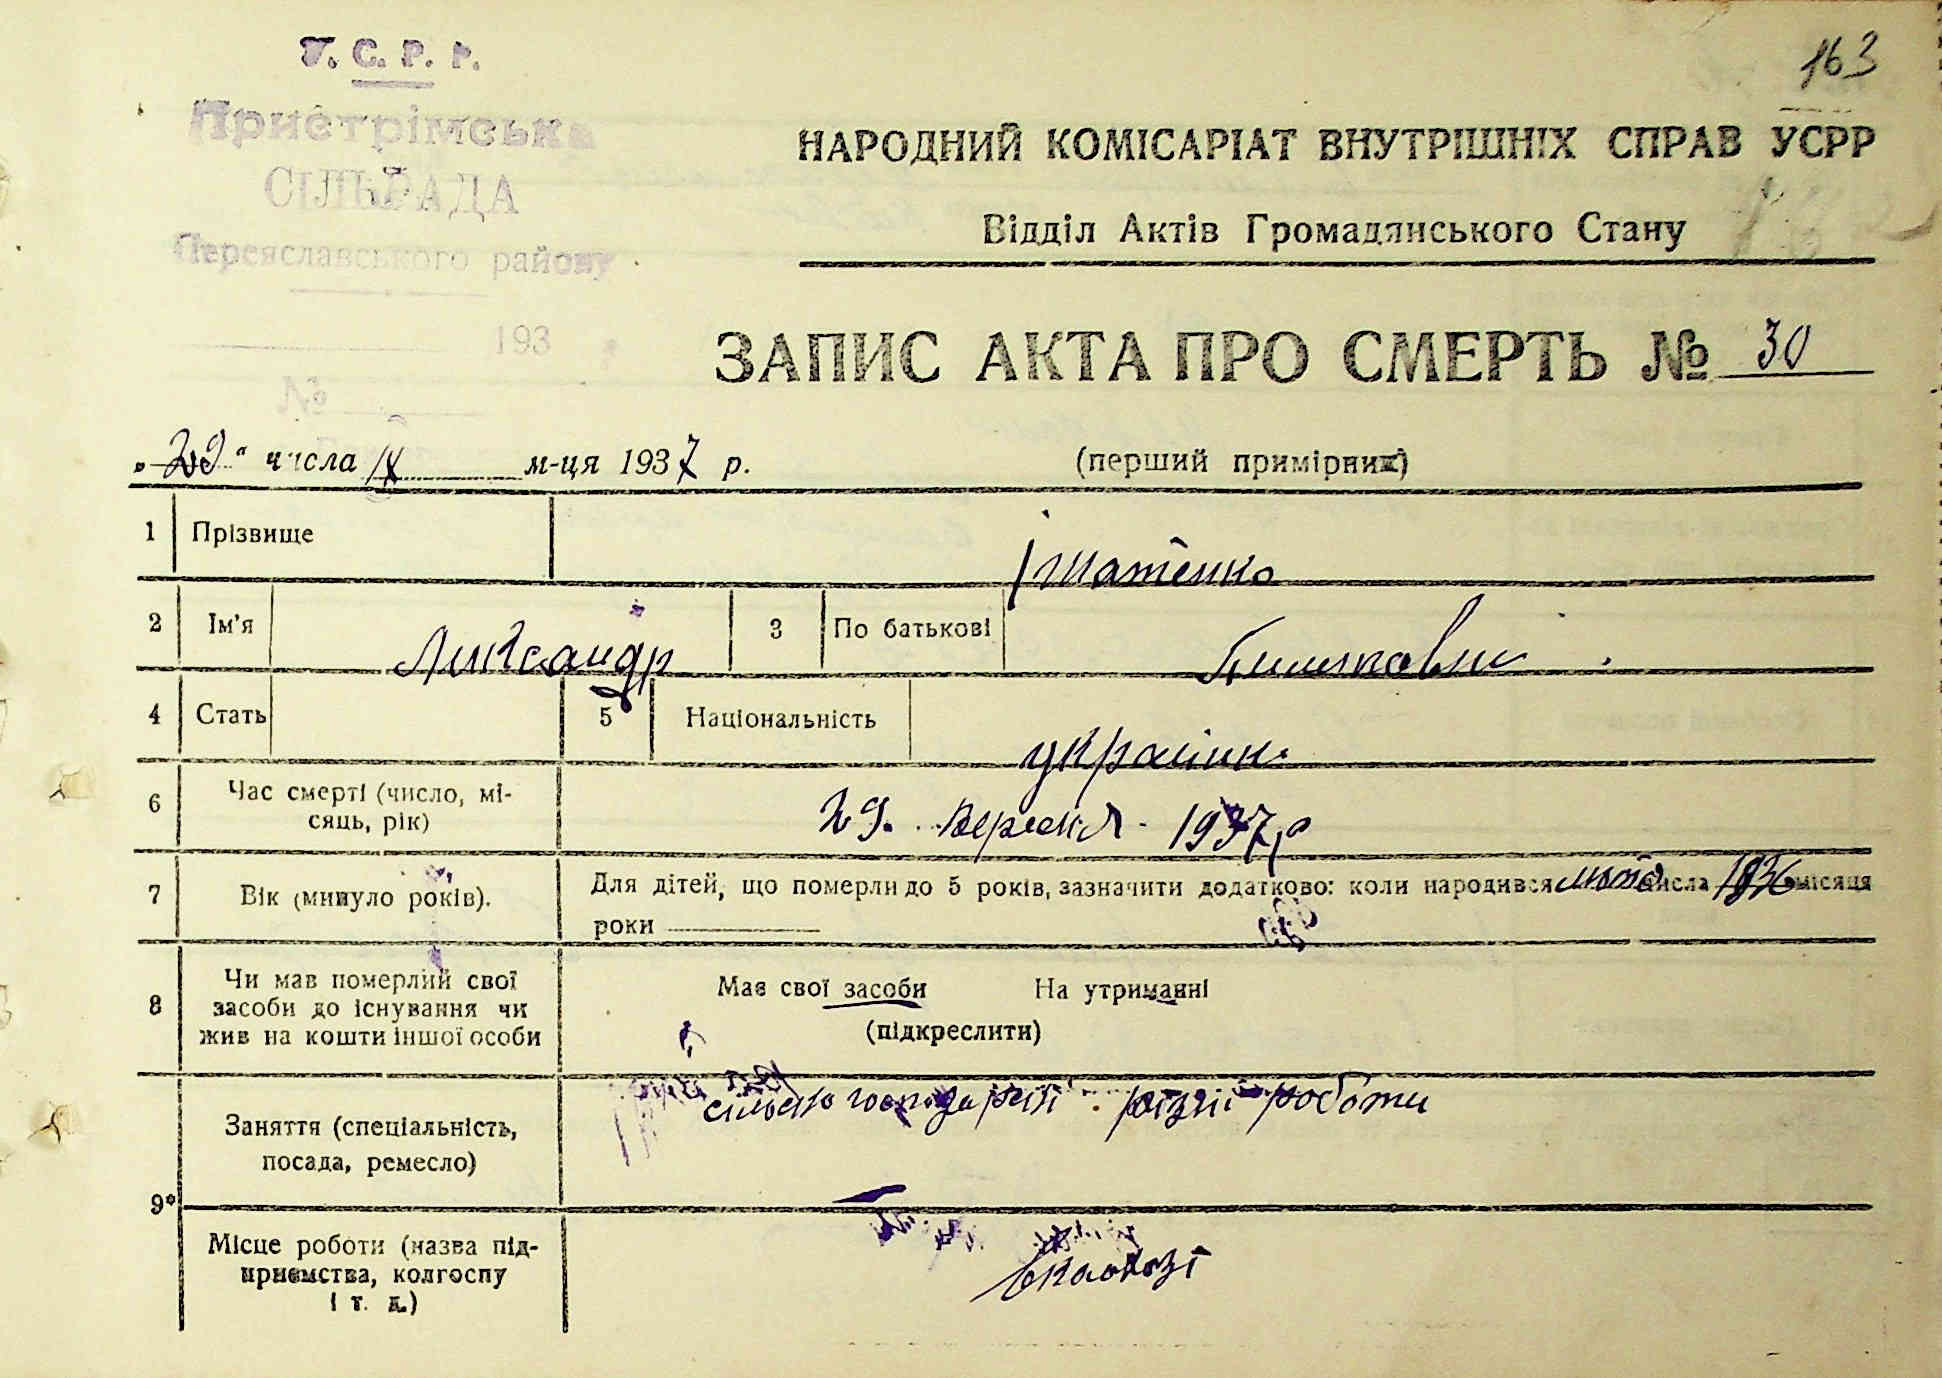 У. С. Р. Р.
163
Пристрімська
СІЛЬРАДА
Переяславського району
193
№
НАРОДНИЙ КОМІСАРІАТ ВНУТРІШНІХ СПРАВ УСРР
Відділ Актів Громадянського Стану
ЗАПИС АКТА ПРО СМЕРТЬ № 30
„29" числа IX м-ця 1937 р. (перший примірник)
1 Прізвище
2 Ім'я Олександр 3 По батькові
4 Стать 5 Національність українк
6 Час смерті (число, мі-
сяць, рік)
29. Вересня 1937 р
7 Вік (минуло років). Для дітей, що померли до 5 років, зазначити додатково: коли народився числа 1936 місяця
роки
8 Чи мав померлий свої
засоби до існування чи
жив на кошти іншої особи
Має свої засоби На утриманні
(підкреслити)
9* Заняття (спеціальність,
посада, ремесло)
сільсько господарські різні роботи
Місце роботи (назва під-
приємства, колгоспу
і т. д.)